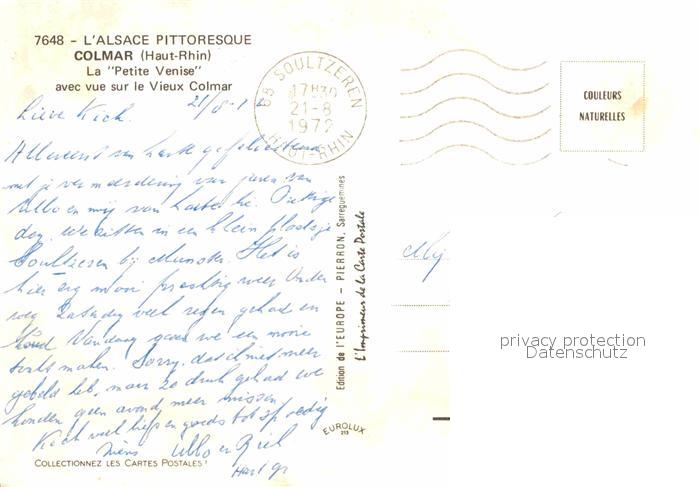 7648 - L'ALSACE PITTORESQUE
COLMAR (Haut-Rhin)
La "Petite Venise"
avec vue sur le Vieux Colmar
21/8-
68 SOULTZEREN
17H30
21-8
1972
HAUT-RHIN
COULEURS
NATURELLES
Lieve
Allereerst van harte gefeliciteerd
met je vermeerdering van jaren van
Ullbo en mij van harte hé. Prettige
dag. We zitten in een klein plaatsje
Soultzeren bij Munster. Het is
hier erg mooi prachtig weer Onder
weg Zaterdag veel regen gehad en
koud Vandaag gaan we een mooie
tocht maken. Sorry, dat ik niet meer
gebeld heb, maar zo druk gehad we
konden geen avond meer missen
veel liefs en goeds tot spoedig
Ullbo en
Hartgr
Mej
Edition de l'EUROPE - PIERRON, Sarreguemines
L'Imprimeur de la Carte Postale
EUROLUX
213
COLLECTIONNEZ LES CARTES POSTALES !
privacy protection
Datenschutz